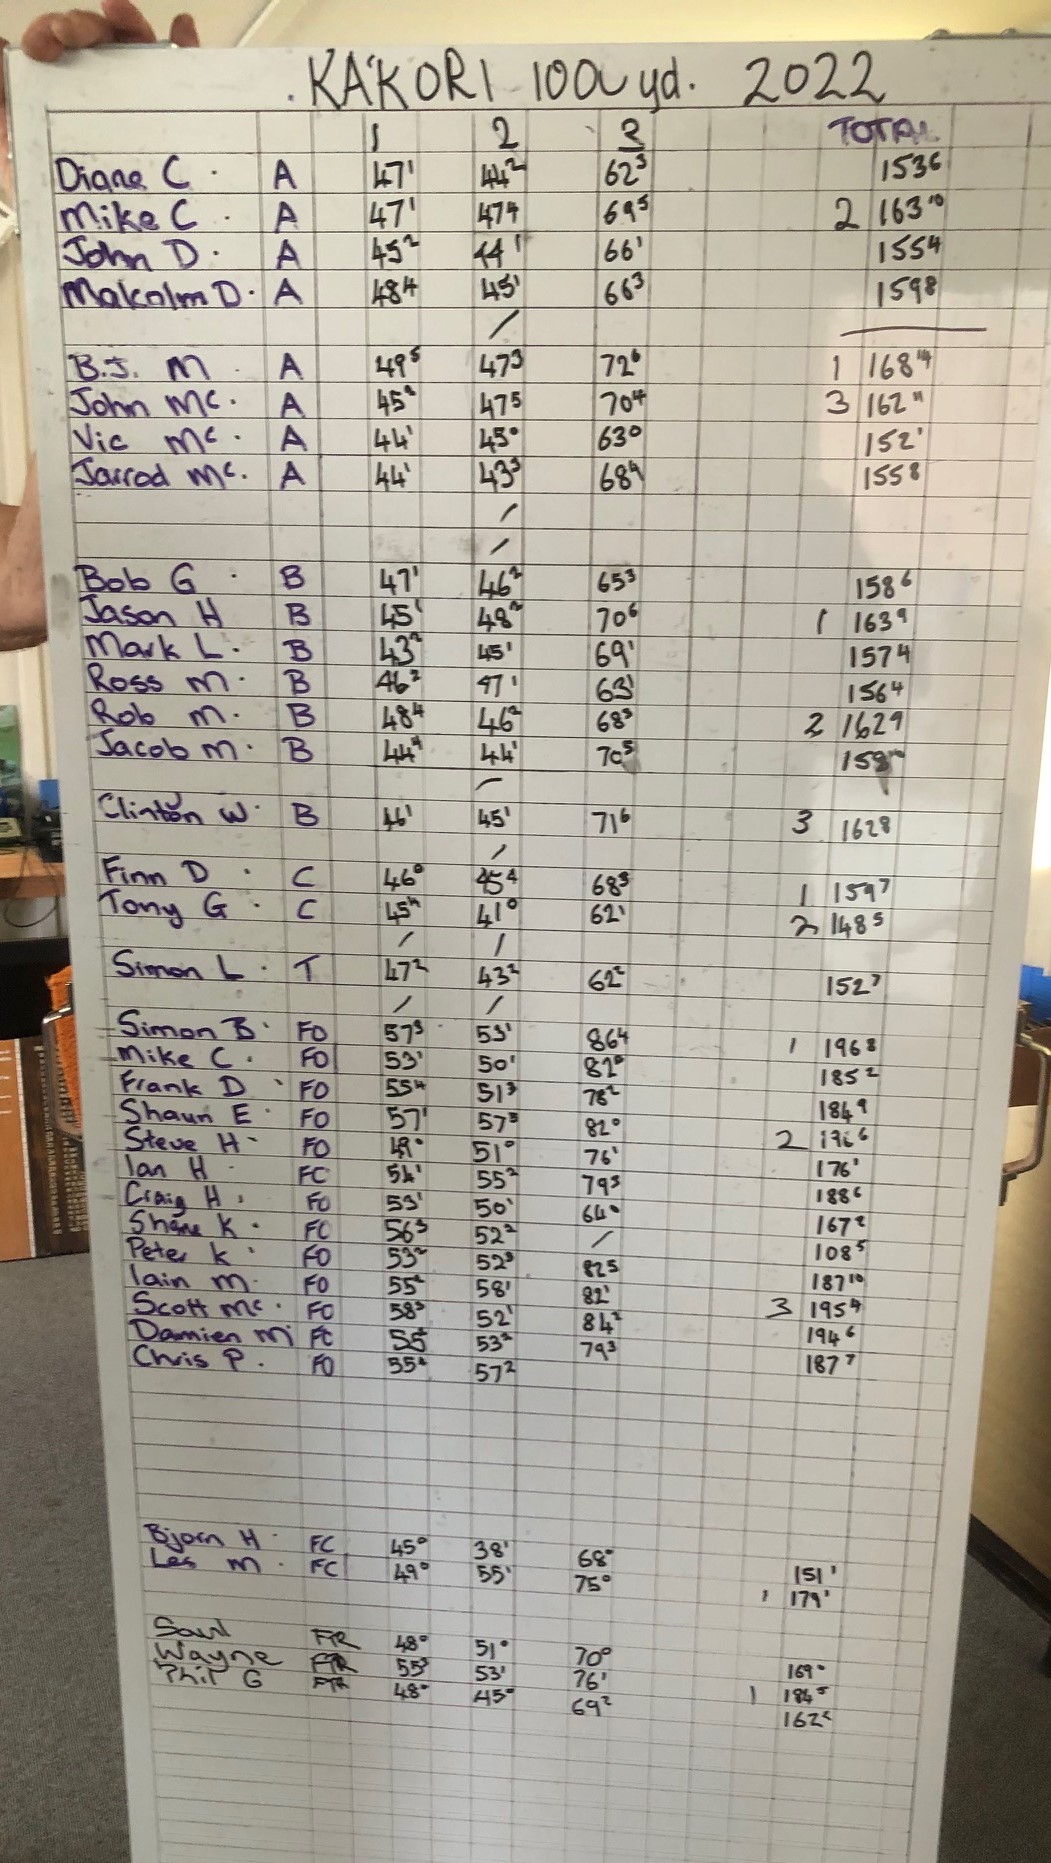 KA'KORI 1000 yd. 2022
1 2 3 TOTAL
Diane C. A 47¹ 44² 62³ 153⁶
Mike C. A 47¹ 47⁴ 69⁵ 2 163¹⁰
John D. A 45² 44¹ 66¹ 155⁴
Malcolm D. A 48⁴ 45¹ 66³ 159⁸
/
B.J. M A 49⁵ 47³ 72⁶ 1 168¹⁴
John Mc. A 45² 47⁵ 70⁴ 3 162¹¹
Vic Mc. A 44¹ 45⁰ 63⁰ 152¹
Jarrod Mc. A 44¹ 43³ 68⁴ 155⁸
/
/
Bob G. B 47¹ 46² 65³ 158⁶
Jason H B 45¹ 48² 70⁶ 1 163⁹
Mark L. B 43² 45¹ 69¹ 157⁴
Ross M. B 46² 47¹ 63¹ 156⁴
Rob M. B 48⁴ 46² 68³ 2 162⁹
Jacob M. B 44⁴ 44¹ 70⁵ 158¹⁰
/
Clinton W. B 46¹ 45¹ 71⁶ 3 162⁸
/
Finn D. C 46⁰ 45⁴ 68³ 1 159⁷
Tony G. C 45⁴ 41⁰ 62¹ 2 148⁵
/ /
Simon L. T 47² 43² 62² 152⁷
/ /
Simon B. FO 57³ 53¹ 86⁴ 1 196⁸
Mike C. FO 53¹ 50¹ 82⁰ 185²
Frank D FO 55⁴ 51³ 78² 184⁹
Shaun E. FO 57¹ 57⁵ 82⁰ 2 196⁶
Steve H- FO 49⁰ 51⁰ 76¹ 176¹
Ian H. FO 54¹ 55² 79³ 188⁶
Craig H. FO 53¹ 50¹ 64⁰ 167²
Shane K. FO 56³ 52² / 108⁵
Peter K. FO 53² 52³ 82⁵ 187¹⁰
Iain M. FO 55² 58¹ 82¹ 3 195⁴
Scott Mc. FO 58³ 52¹ 84² 194⁶
Damien M FO 55 53² 79³ 187⁷
Chris P. FO 55² 57²
Bjorn H. FC 45⁰ 38¹ 68⁰ 151¹
Les M. FC 49⁰ 55¹ 75⁰ 1 179¹
Saul FTR 48⁰ 51⁰ 70⁰ 169⁰
Wayne FTR 55³ 53¹ 76¹ 1 184⁵
Phil G FTR 48⁰ 45⁰ 69² 162²